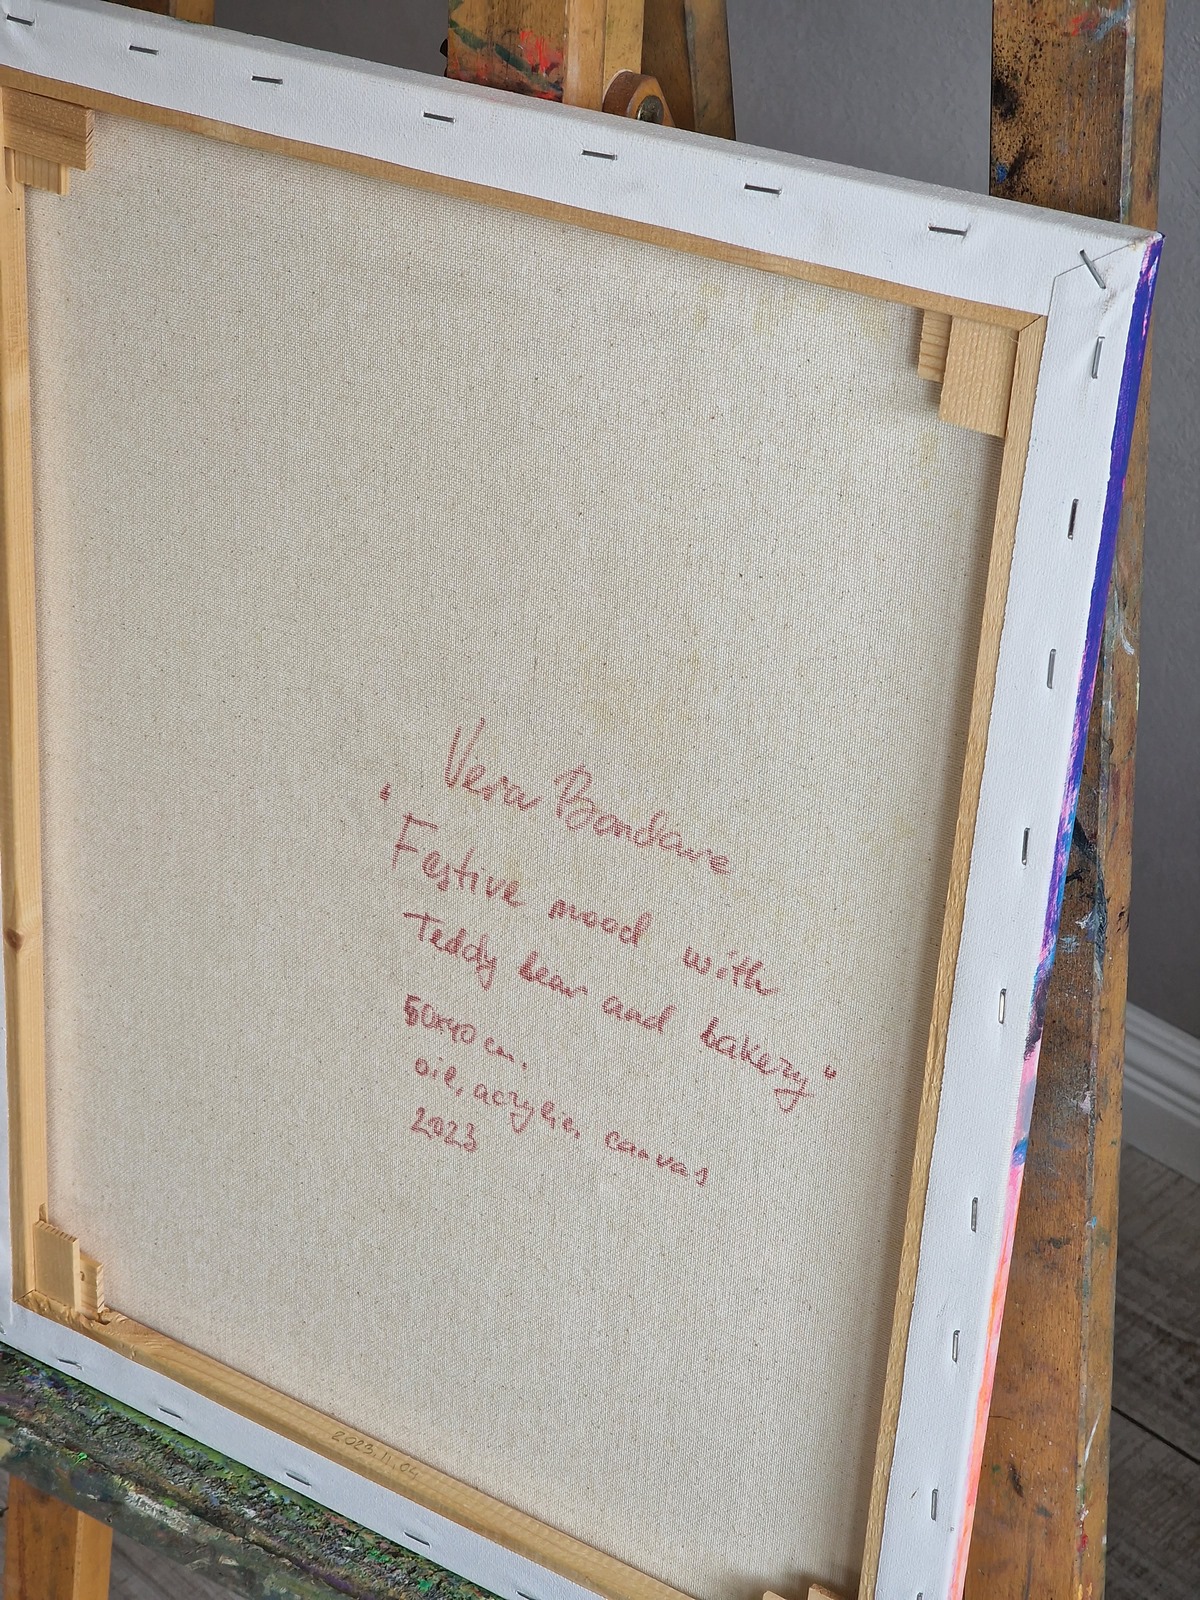 Vera Bondare
"Festive mood with
Teddy bear and bakery"
50x40 cm.
oil, acrylic, canvas
2023
2023.11.04